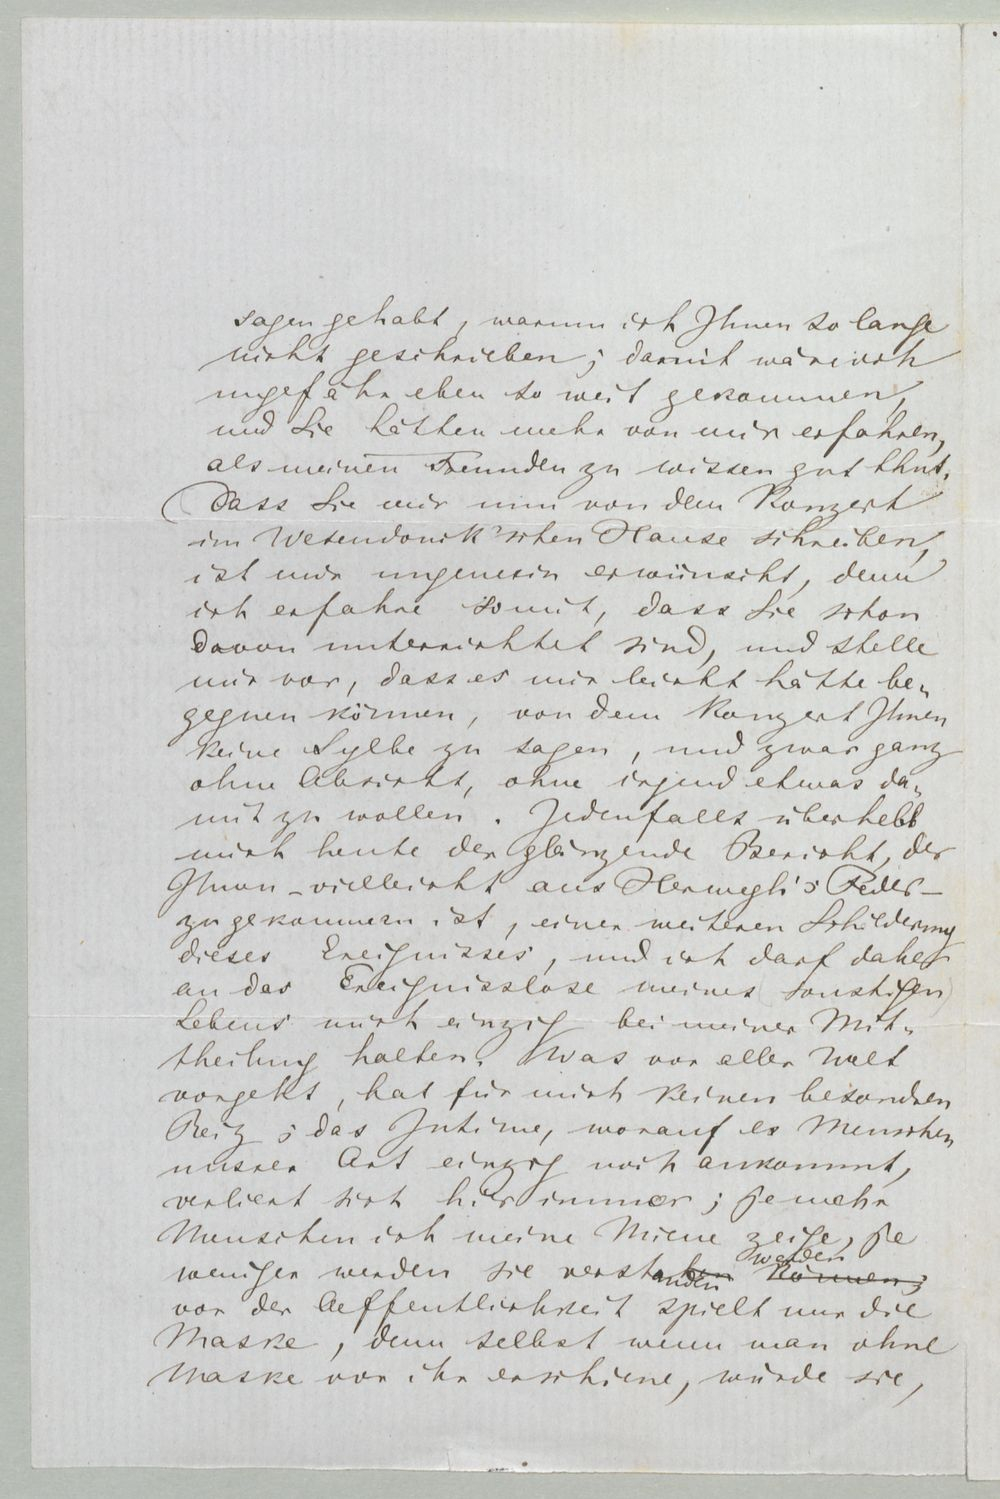 sagen gehabt, warum ich Ihnen so lange
nicht geschrieben; damit wäre ich
ungefähr eben so weit gekommen,
und Sie hätten mehr von mir erfahren,
als meinen Freunden zu wissen gut thut.
Dass Sie mir nun von dem Konzert
im Wesendonck'schen Hause schreiben,
ist mir ungemein erwünscht, denn
ich erfahre somit, dass Sie schon
davon unterrichtet sind, und stelle
mir vor, dass es mir leicht hätte be-
gegnen können, von dem Konzert Ihnen
keine Sylbe zu sagen, und zwar ganz
ohne Absicht, ohne irgend etwas da-
mit zu wollen. Jedenfalls überhebt
mich heute der glänzende Bericht, der
Ihnen – vielleicht aus Herwegh's Feder –
zugekommen ist, einer weiteren Schilderung
dieses Ereignisses, und ich darf daher
an das Ereignisslose meines (sonstigen)
Lebens mich einzig bei meiner Mit-
theilung halten. Was vor aller Welt
vorgeht, hat für mich keinen besondren
Reiz; das Intime, worauf es Menschen
unsrer Art einzig noch ankommt,
verliert sich hier immer; je mehr
Menschen ich meine Miene zeige, je
weniger werden sie verstanden werden können;
vor der Oeffentlichkeit spielt nur die
Maske, denn selbst wenn man ohne
Maske vor ihr erschiene, würde sie,